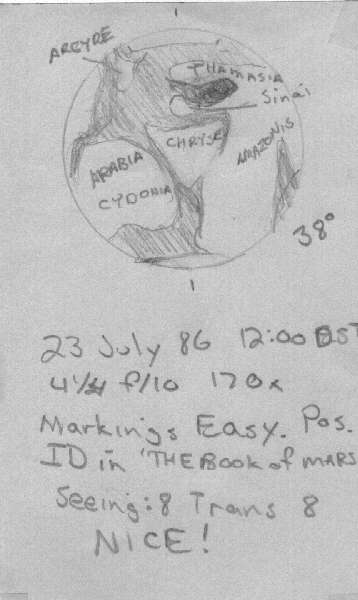 ARGYRE
THAMASIA
Sinai
CHRYSE
AMAZONIS
ARABIA
CYDONIA
38°
23 July 86 12:00 DST
4 1/4 f/10 170x
Markings Easy. Pos.
ID in 'THE BOOK of MARS
Seeing: 8 Trans 8
NICE!